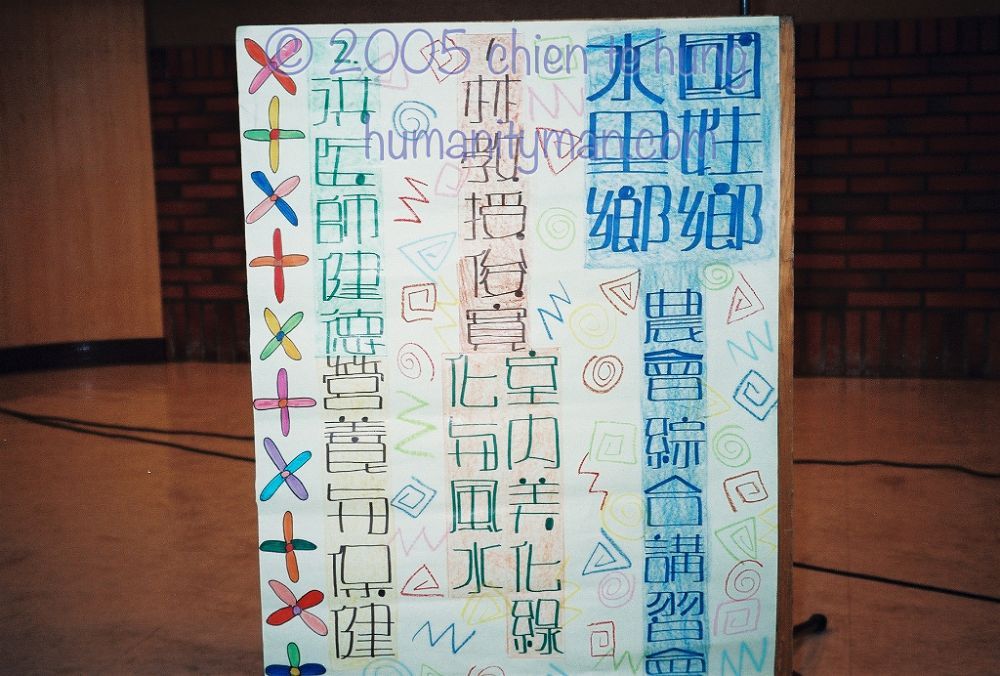 國姓鄉
水里鄉
農會綜合講習會
1.
林教授俊
室內美化綠
化与風水
2.
洪医師健德
營養与保健
© 2005 chien te hung
humanityman.com